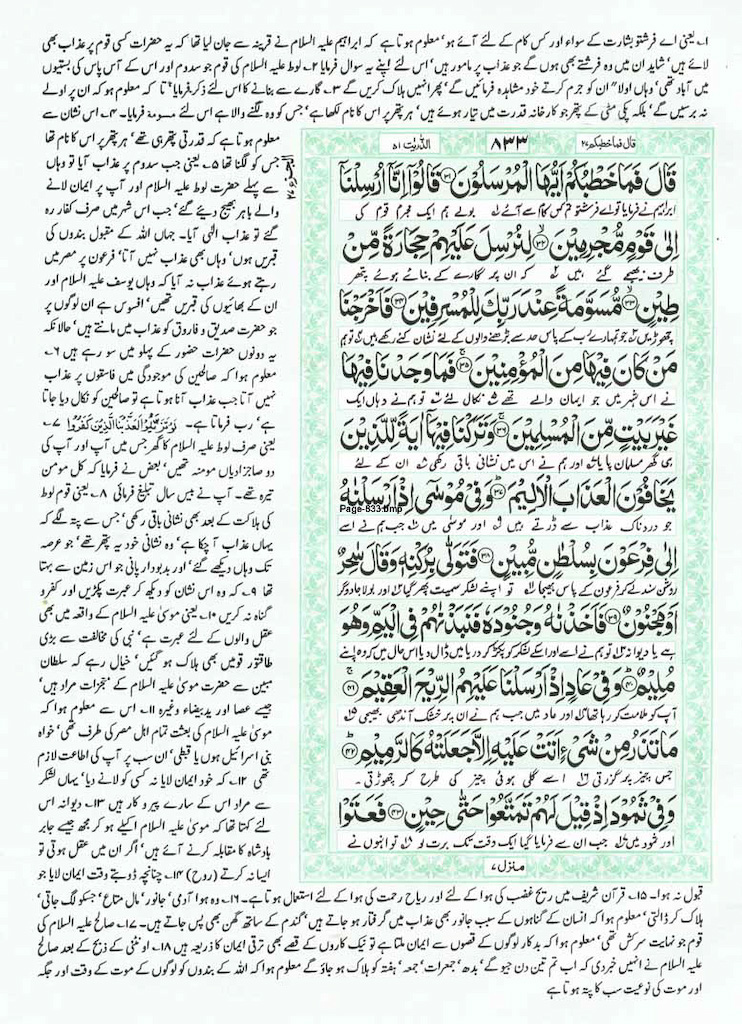 ۱۔ یعنی اے فرشتو بشارت کے سواء اور کس کام کے لئے آئے ہو' معلوم ہوتا ہے کہ ابراہیم علیہ السلام نے قرینہ سے جان لیا تھا کہ یہ حضرات کسی قوم پر عذاب بھی
لائے ہیں' شاید ان میں وہ فرشتے بھی ہوں گے جو عذاب پر مامور ہیں' اس لئے اپنے یہ سوال فرمایا ۲۔ لوط علیہ السلام کی قوم جو سدوم اور اس کے آس پاس کی بستیوں
میں آباد تھی' وہاں اولاً" ان کو جرم کرتے خود مشاہدہ فرمائیں گے' پھر انہیں ہلاک کریں گے ۳۔ گارے سے بنانے کا اس لئے ذکر فرمایا' تا کہ معلوم ہو کہ ان پر اولے
نہ برسیں گے' بلکہ پکی مٹی کے پتھر جو کارخانہ قدرت میں تیار ہوئے ہیں' ہر پتھر پر اس کا نام لکھا ہے' جس کو وہ لگنے والا ہے اس لئے مسومة فرمایا۔ ۴۔ اس نشان سے
قال فما خطبکم ۲۷
۸۳۳
الذّٰریٰت ۵۱
قَالَ فَمَا خَطْبُكُمْ اَيُّهَا الْمُرْسَلُوْنَ ۳۱ قَالُوْۤا اِنَّاۤ اُرْسِلْنَاۤ
ابراہیم نے فرمایا تو اے فرشتو تم کس کام سے آئے بولے ہم ایک مجرم قوم کی
اِلٰى قَوْمٍ مُّجْرِمِيْنَ ۳۲ لِنُرْسِلَ عَلَيْهِمْ حِجَارَةً مِّنْ
طرف بھیجے گئے ہیں کہ ان پر گارے کے بنائے ہوئے پتھر
طِيْنٍ ۳۳ مُّسَوَّمَةً عِنْدَ رَبِّكَ لِلْمُسْرِفِيْنَ ۳۴ فَاَخْرَجْنَا
چھوڑیں جو تمہارے رب کے پاس حد سے بڑھنے والوں کے لئے نشان کئے رکھے ہیں تو ہم
مَنْ كَانَ فِيْهَا مِنَ الْمُؤْمِنِيْنَ ۳۵ فَمَا وَجَدْنَا فِيْهَا
نے اس شہر میں جو ایمان والے تھے نکال لئے تو ہم نے وہاں ایک
غَيْرَ بَيْتٍ مِّنَ الْمُسْلِمِيْنَ ۳۶ وَتَرَكْنَا فِيْهَاۤ اٰيَةً لِّلَّذِيْنَ
ہی گھر مسلمان پایا اور ہم نے اس میں نشانی باقی رکھی ان کے لئے
يَخَافُوْنَ الْعَذَابَ الْاَلِيْمَ ۳۷ وَفِيْ مُوْسٰۤى اِذْ اَرْسَلْنٰهُ
Page-833.bmp
جو دردناک عذاب سے ڈرتے ہیں اور موسیٰ میں جب ہم نے اسے
اِلٰى فِرْعَوْنَ بِسُلْطٰنٍ مُّبِيْنٍ ۳۸ فَتَوَلّٰى بِرُكْنِهٖ وَقَالَ سٰحِرٌ
روشن سند لے کر فرعون کے پاس بھیجا تو اپنے لشکر سمیت پھر گیا اور بولا جادوگر
اَوْ مَجْنُوْنٌ ۳۹ فَاَخَذْنٰهُ وَجُنُوْدَهٗ فَنَبَذْنٰهُمْ فِي الْيَمِّ وَهُوَ
ہے یا دیوانہ تو ہم نے اسے اور اسکے لشکر کو پکڑ کر دریا میں ڈال دیا اس حال میں کہ وہ اپنے
مُلِيْمٌ ۴۰ وَفِيْ عَادٍ اِذْ اَرْسَلْنَا عَلَيْهِمُ الرِّيْحَ الْعَقِيْمَ ۴۱
آپ کو ملامت کر رہا تھا اور عاد میں جب ہم نے ان پر خشک آندھی بھیجی
مَا تَذَرُ مِنْ شَيْءٍ اَتَتْ عَلَيْهِ اِلَّا جَعَلَتْهُ كَالرَّمِيْمِ ۴۲
جس چیز پر گزرتی اسے گلی ہوئی چیز کی طرح کر چھوڑتی۔
وَفِيْ ثَمُوْدَ اِذْ قِيْلَ لَهُمْ تَمَتَّعُوْا حَتّٰى حِيْنٍ ۴۳ فَعَتَوْا
اور ثمود میں جب ان سے فرمایا گیا ایک وقت تک برت لو تو انہوں نے
منزل ۷
معلوم ہوتا ہے کہ قدرتی پتھر ہی تھے' ہر پتھر پر اس کا نام تھا
جس کو لگنا تھا ۵۔ یعنی جب سدوم پر عذاب آیا تو وہاں
سے پہلے حضرت لوط علیہ السلام اور آپ پر ایمان لانے
والے باہر بھیج دیئے گئے' جب اس شہر میں صرف کفار رہ
گئے تو عذاب الٰہی آیا۔ جہاں اللہ کے مقبول بندوں کی
قبریں ہوں' وہاں بھی عذاب نہیں آتا' فرعون پر مصر میں
رہتے ہوئے عذاب نہ آیا کہ وہاں یوسف علیہ السلام اور
ان کے بھائیوں کی قبریں تھیں' افسوس ہے ان لوگوں پر
جو حضرت صدیق و فاروق کو عذاب میں مانتے ہیں' حالانکہ
یہ دونوں حضرات حضور کے پہلو میں سو رہے ہیں ۶۔
معلوم ہوا کہ صالحین کی موجودگی میں فاسقوں پر عذاب
نہیں آتا جب عذاب آنا ہوتا ہے تو صالحین کو نکال دیا جاتا
ہے' رب فرماتا ہے۔ لَوْ تَزَيَّلُوْا لَعَذَّبْنَا الَّذِيْنَ كَفَرُوْا ۷۔
یعنی صرف لوط علیہ السلام کا گھر جس میں آپ اور آپ کی
دو صاجزادیاں مومنہ تھیں' بعض نے فرمایا کہ کل مومن
تیرہ تھے۔ آپ نے بیس سال تبلیغ فرمائی ۸۔ یعنی قوم لوط
کی ہلاکت کے بعد بھی نشانی باقی رکھی' جس سے پتہ لگے کہ
یہاں عذاب آ چکا ہے' وہ نشانی خود یہ پتھر تھے' جو عرصہ
تک وہاں دیکھے گئے' اور بدبودار پانی جو اس زمین سے بہتا
تھا ۹۔ کہ وہ اس نشان کو دیکھ کر عبرت پکڑیں اور کفر و
گناہ نہ کریں ۱۰۔ یعنی موسیٰ علیہ السلام کے واقعہ میں بھی
عقل والوں کے لئے عبرت ہے' نبی کی مخالفت سے بڑی
طاقتور قومیں بھی ہلاک ہو گئیں' خیال رہے کہ سلطان
مبین سے حضرت موسیٰ علیہ السلام کے معجزات مراد ہیں'
جیسے عصا اور ید بیضاء وغیرہ ۱۱۔ اس سے معلوم ہوا کہ
موسیٰ علیہ السلام کی بعثت تمام اہل مصر کی طرف تھی' خواہ
بنی اسرائیل ہوں یا قبطی' ان سب پر آپ کی اطاعت لازم
تھی ۱۲۔ کہ خود ایمان لایا نہ کسی کو لانے دیا' یہاں لشکر
سے مراد اس کے سارے پیرو کار ہیں ۱۳۔ دیوانہ اس
لئے کہتا تھا کہ موسیٰ علیہ السلام اکیلے ہو کر مجھ جیسے جابر
بادشاہ کا مقابلہ کرنے آئے ہیں' اگر ان میں عقل ہوتی تو
ایسا نہ کرتے (روح) ۱۴۔ چنانچہ ڈوبتے وقت ایمان لایا جو
قبول نہ ہوا۔ ۱۵۔ قرآن شریف میں ریح غضب کی ہوا کے لئے اور ریاح رحمت کی ہوا کے لئے استعمال ہوتا ہے۔ ۱۶۔ وہ ہوا آدمی' جانور' مال متاع' جس کو لگ جاتی'
ہلاک کر ڈالتی' معلوم ہوا کہ انسان کے گناہوں کے سبب جانور بھی عذاب میں گرفتار ہو جاتے ہیں' گندم کے ساتھ گھن بھی پس جاتے ہیں۔ ۱۷۔ صالح علیہ السلام کی
قوم جو نہایت سرکش تھی' معلوم ہوا کہ بدکار لوگوں کے قصوں سے ایمان ملتا ہے تو نیک کاروں کے قصے بھی ترقی ایمان کا ذریعہ ہیں ۱۸۔ اونٹنی کے ذبح کے بعد صالح
علیہ السلام نے انہیں خبر دی کہ اب تم تین دن جیو گے' بدھ' جمعرات' جمعہ' ہفتہ کو ہلاک ہو جاؤ گے معلوم ہوا کہ اللہ کے بندوں کو لوگوں کے موت کے وقت اور جگہ
اور موت کی نوعیت سب کا پتہ ہوتا ہے